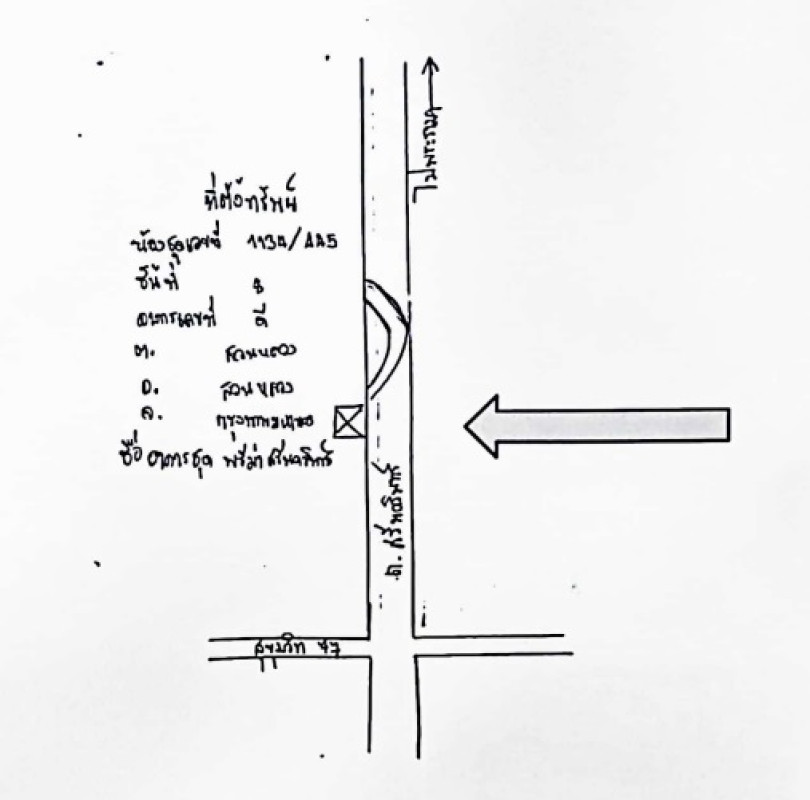 ที่ตั้งทรัพย์
ห้องชุดเลขที่ 1134/445
ชั้นที่ 8
อาคารเลขที่ ดี
ต. สวนหลวง
อ. สวนหลวง
จ. กรุงเทพมหานคร
ชื่ออาคารชุด พรีม่า ศรีนครินทร์
ถ. ศรีนครินทร์